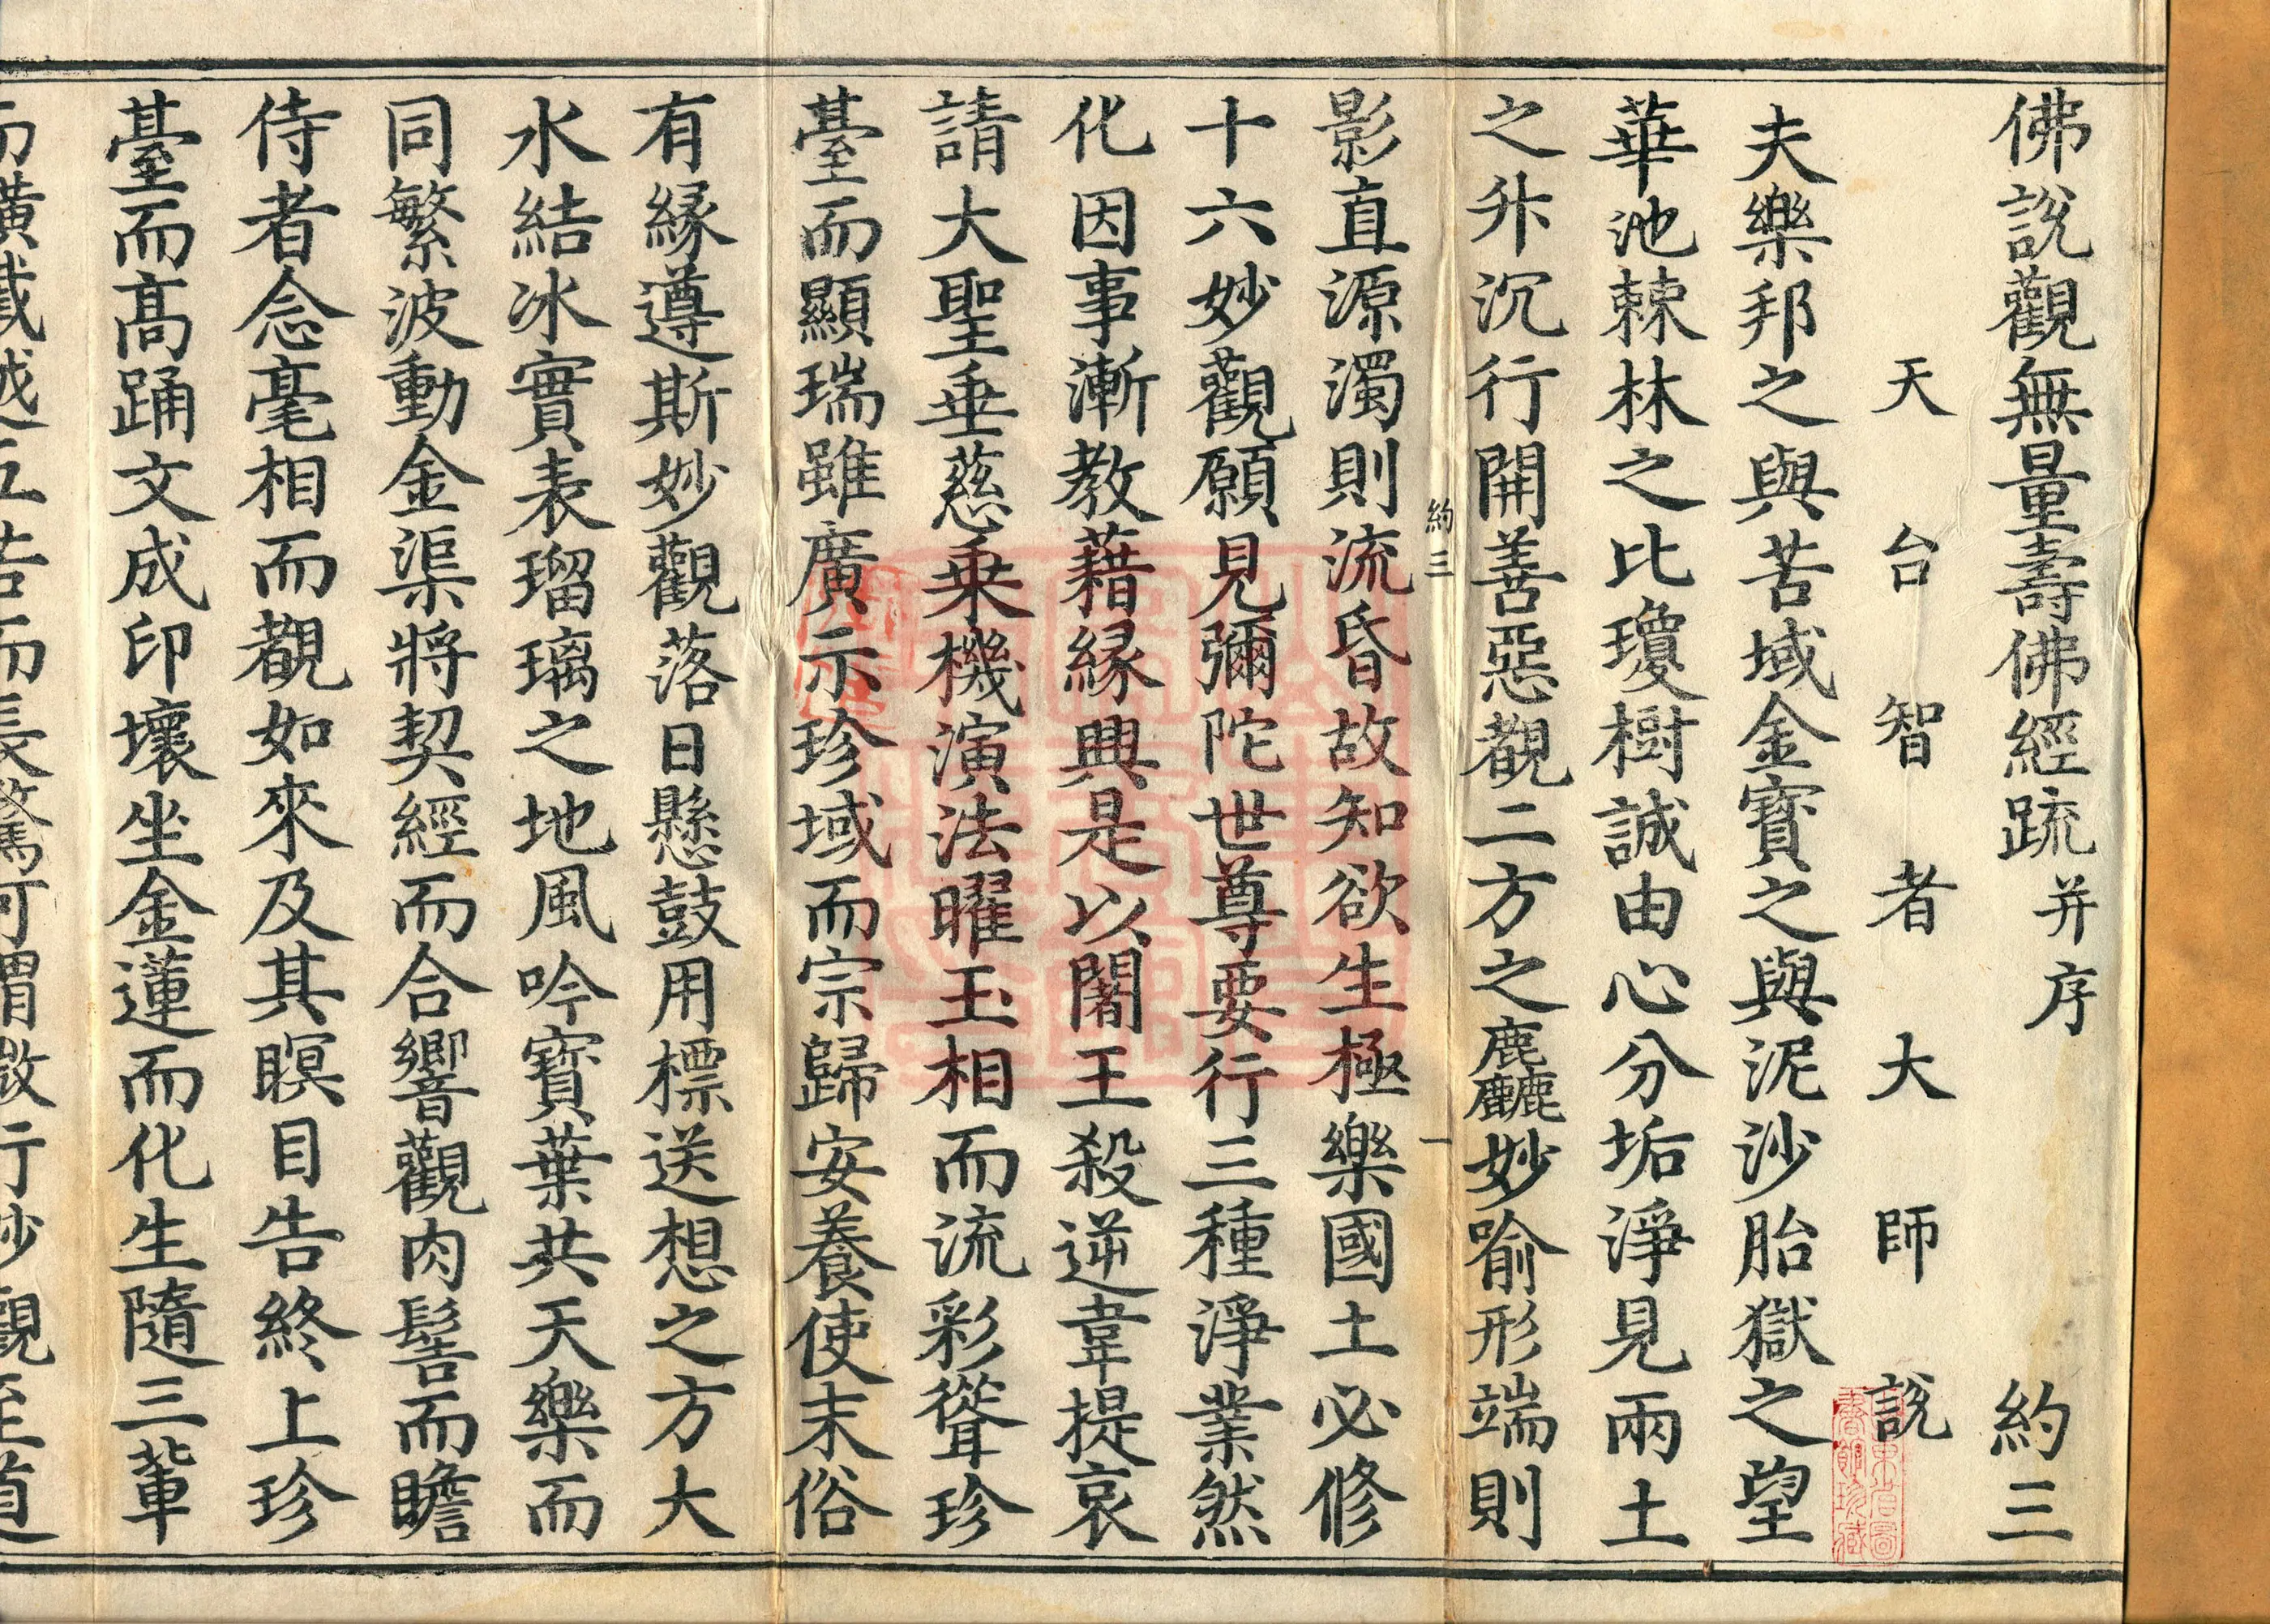 佛說觀無量壽佛經疏并序　約三
天台智者大師說
夫樂邦之與苦域金寶之與泥沙胎獄之望
華池棘林之比瓊樹誠由心分垢淨見兩土
之升沉行開善惡覩二方之麁麤妙喻形端則
約三　一
影直源濁則流昏故知欲生極樂國土必修
十六妙觀願見彌陀世尊要行三種淨業然
化因事漸教藉緣興是以闍王殺逆韋提哀
請大聖垂慈乘機演法曜玉相而流彩聳珍
臺而顯瑞雖廣示珍域而宗歸安養使末俗
有緣遵斯妙觀落日懸鼓用標送想之方大
水結冰實表瑠璃之地風吟寶葉共天樂而
同繁波動金渠將契經而合響觀肉髻而瞻
侍者念毫相而覩如來及其瞑目告終上珍
臺而高踊文成印壞坐金蓮而化生隨三輩